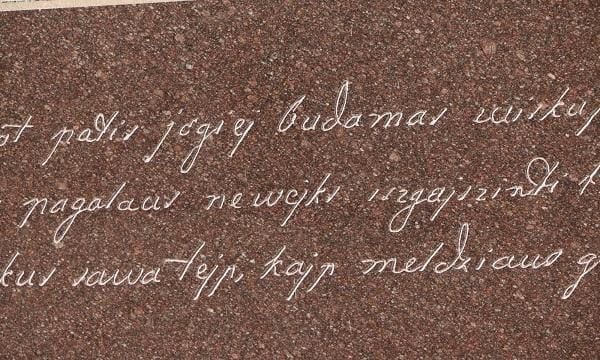 patis jogiej budamas
pagalaus newejks iszgajszinti
sawa tejp, kajp meldziaus